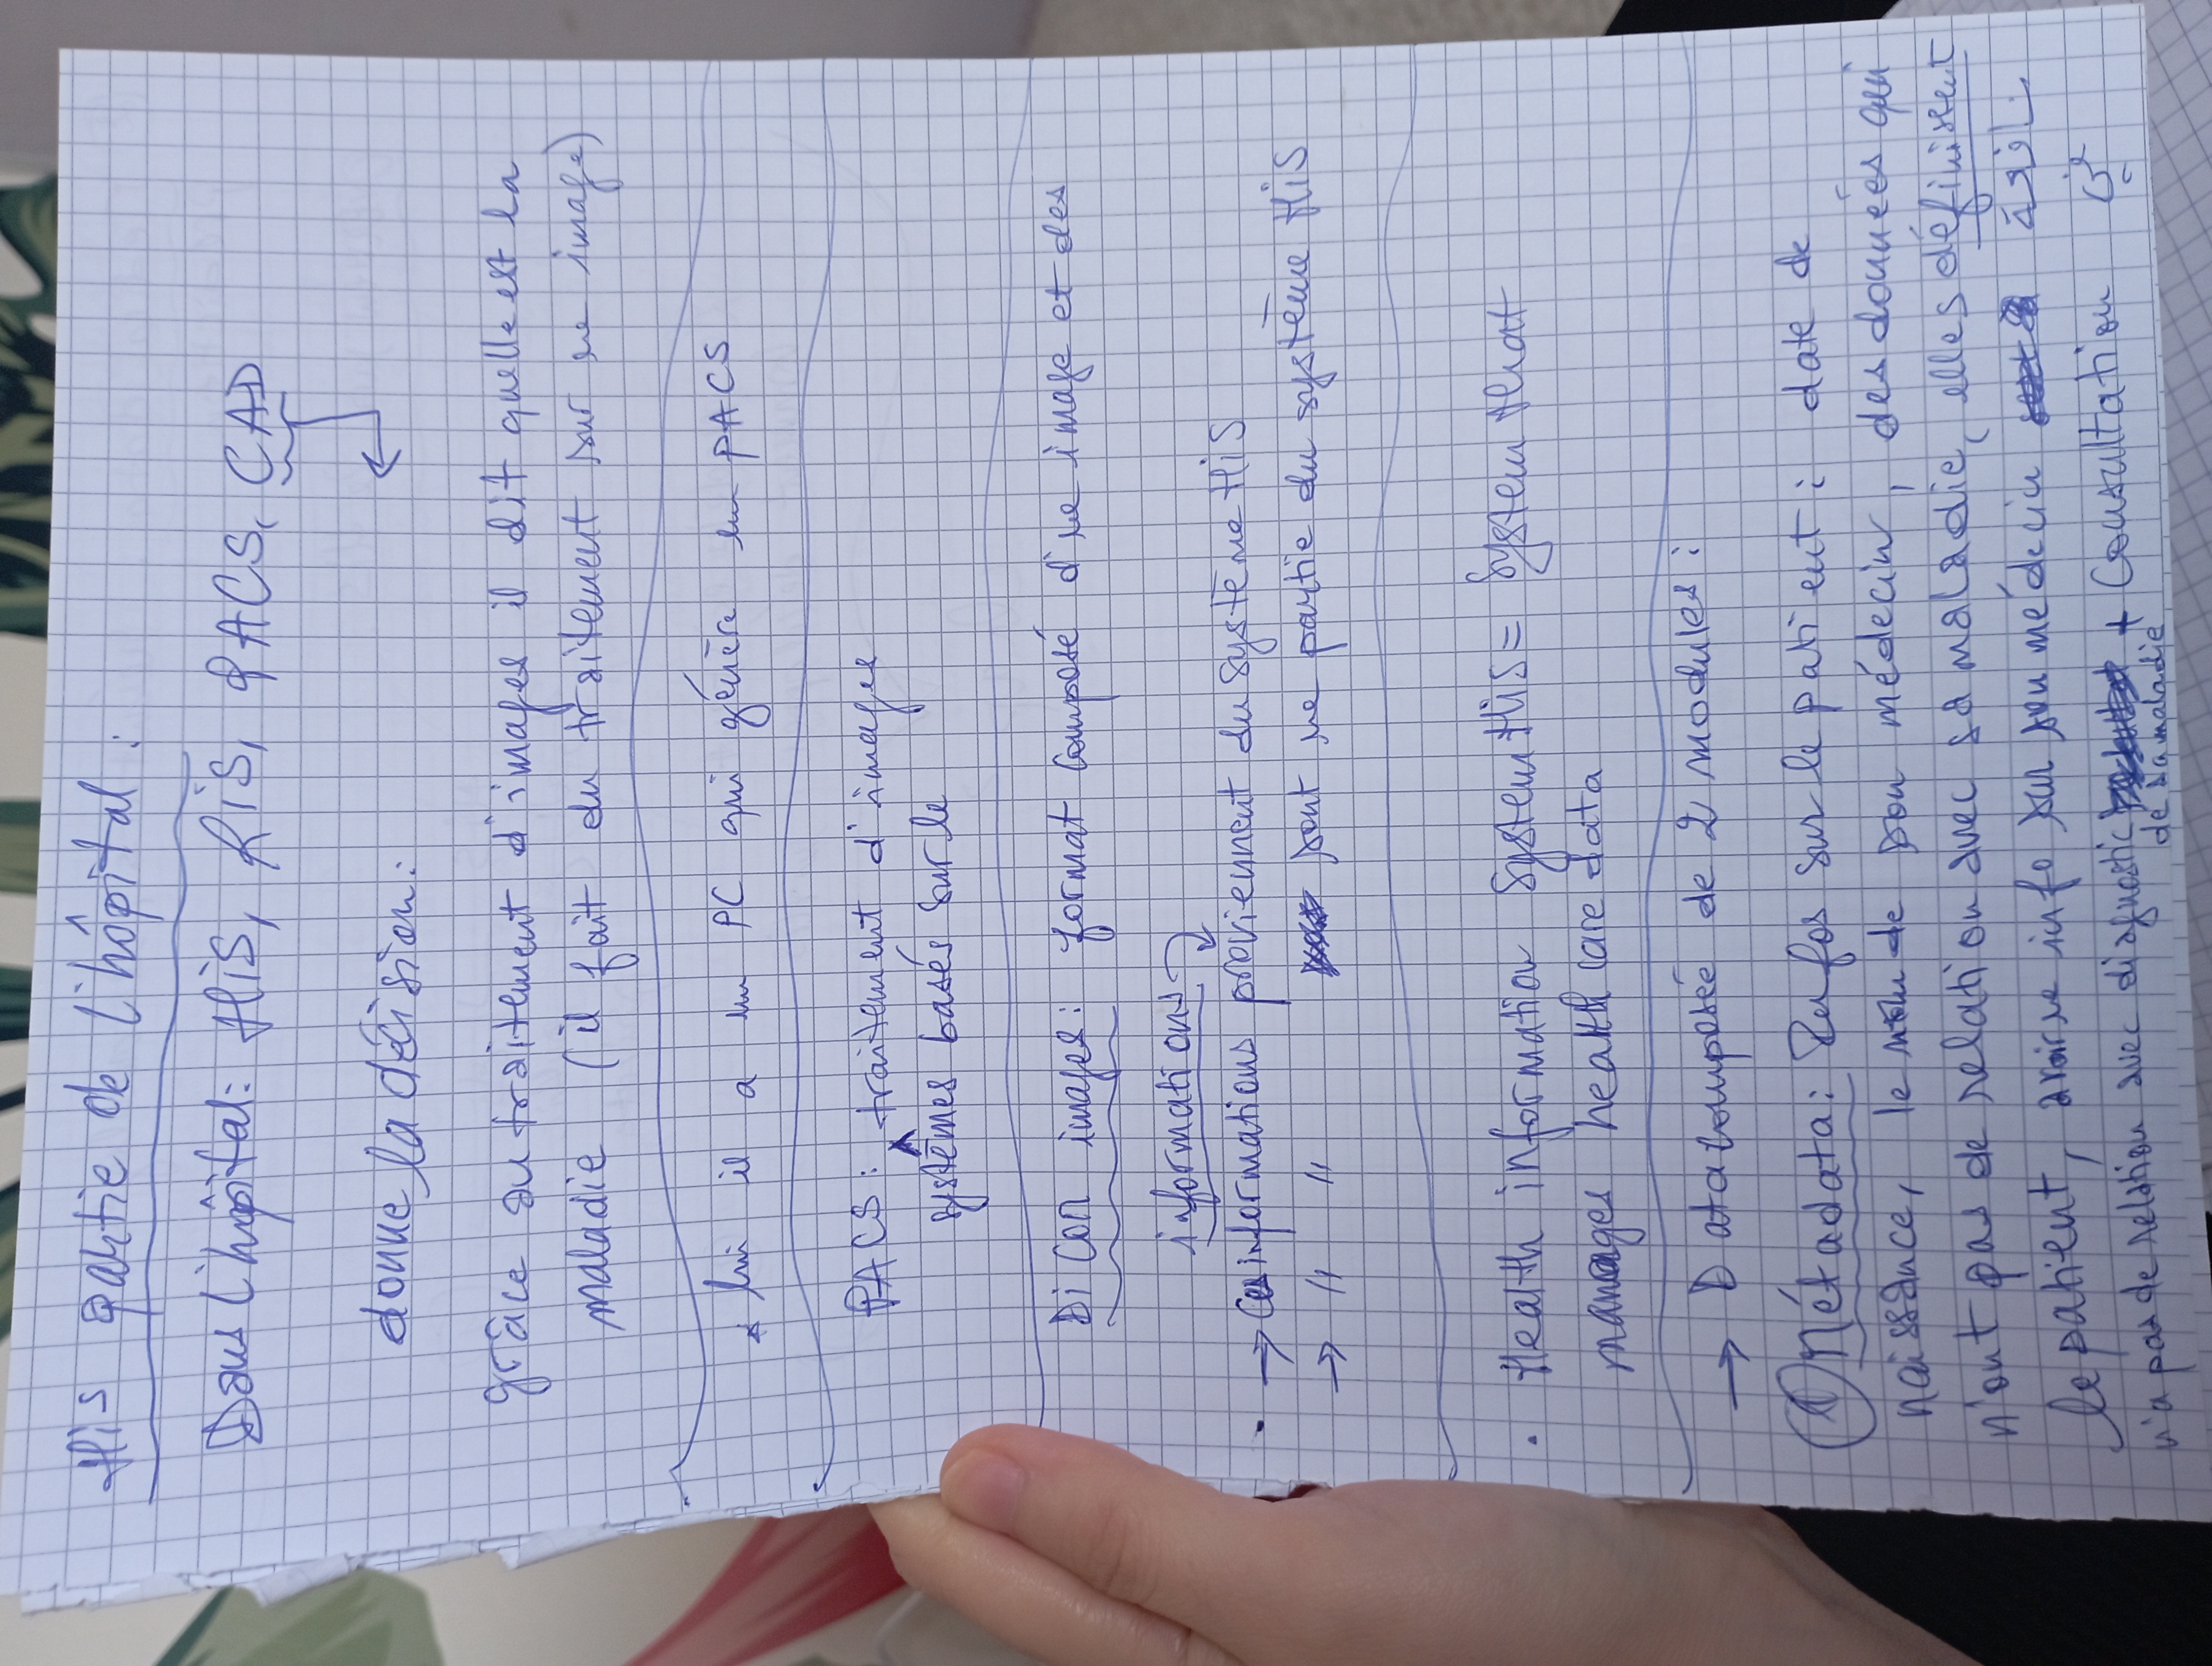 His partie de l'hôpital :
Dans l'hôpital : HiS, RiS, PACS, CAD
donne la décision :
grâce au traitement d'images il dit quelle est la
maladie (il fait du traitement sur une image)
lui il a un PC qui génère un PACS
PACS : traitement d'images
systèmes basés sur le
DiCOM images : format composé d'une image et des
informations
→ Ces informations proviennent du système HiS
→ " " sont une partie du système HiS
. Health information System HiS = System that
manages health care data
→ Data composée de 2 modules :
① Métadata : Infos sur le patient : date de
naissance, le nom de son médecin, des données qui
n'ont pas de relation avec sa maladie, elles définissent
le patient, avoir une info sur son médecin
n'a pas de relation avec diagnostic + Consultation
de sa maladie